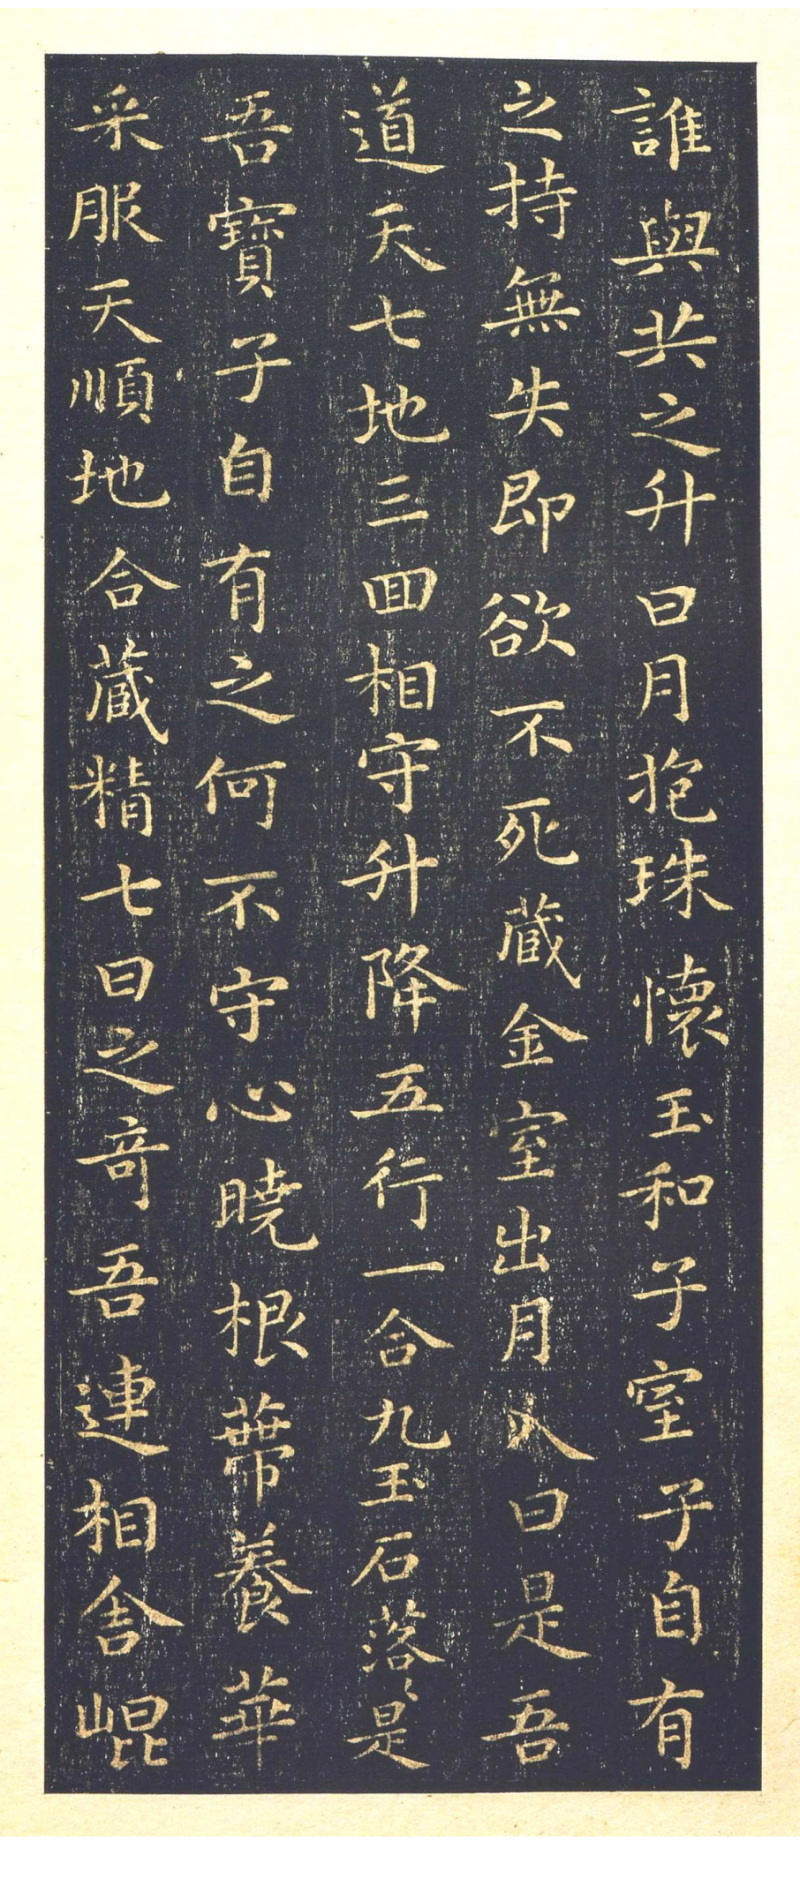 誰與共之升日月抱珠懷玉和子室子自有
之持無失即欲不死藏金室出月入日是吾
道天七地三回相守升降五行一合九玉石落〻是
吾寶子自有之何不守心曉根蔕養華
采服天順地合藏精七日之奇吾連相舍崐